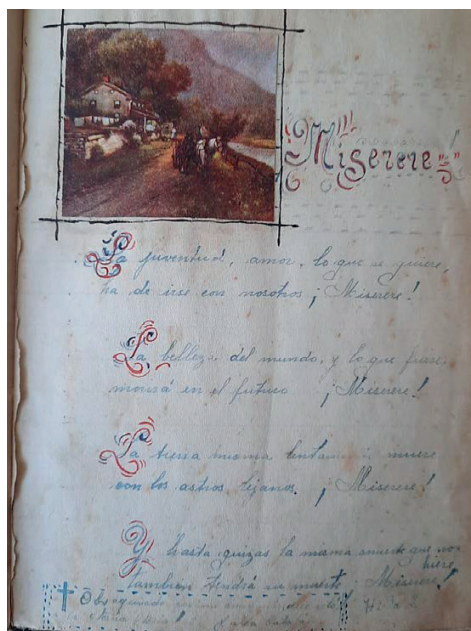 Miserere!
La juventud, amor, lo que se quiere,
ha de irse con nosotros ¡Miserere!
La belleza del mundo, y lo que fuere
morirá en el futuro ¡Miserere!
La tierra misma lentamente muere
con los astros lejanos. ¡Miserere!
Y hasta quizás la misma muerte que nos
hiere
tambien tendrá su muerte ¡Miserere!